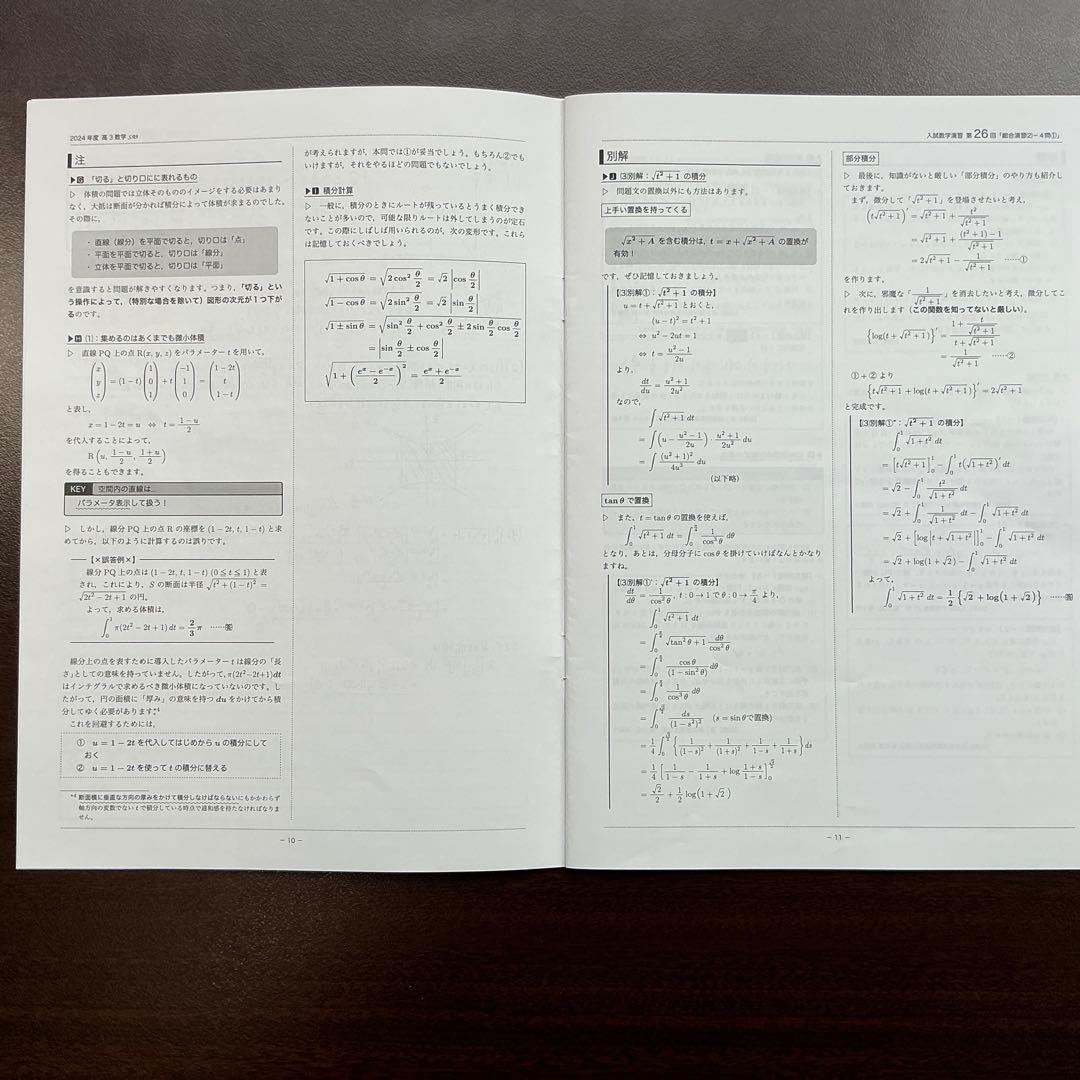 2024 年度 高 3 数学 SA9
注
▶G 「切る」と切り口にに表れるもの
▷ 体積の問題では立体そのもののイメージをする必要はあまり
なく，大抵は断面が分かれば積分によって体積が求まるのでした。
その際に，
・直線（線分）を平面で切ると，切り口は「点」
・平面を平面で切ると，切り口は「線分」
・立体を平面で切ると，切り口は「平面」
を意識すると問題が解きやすくなります。つまり，「切る」とい
う操作によって，（特別な場合を除いて）図形の次元が 1 つ下が
るのです。
▶H (1)：集めるのはあくまでも微小体積
▷ 直線 PQ 上の点 R(x, y, z) をパラメーター t を用いて，
(x y z) = (1−t) (1 0 1) + t (−1 1 0) = (1−2t t 1−t)
と表し，
x = 1 − 2t = u ⇔ t = (1−u)/2
を代入することによって，
R (u, (1−u)/2, (1+u)/2)
を得ることもできます。
KEY 空間内の直線は…
パラメータ表示して扱う！
▷ しかし，線分 PQ 上の点 R の座標を (1 − 2t, t, 1 − t) と求
めてから，以下のように計算するのは誤りです。
【×誤答例×】
線分 PQ 上の点は (1 − 2t, t, 1 − t) (0 ≦ t ≦ 1) と表
され，これにより，S の断面は半径 √(t²+(1−t)²) =
√(2t²−2t+1) の円。
よって，求める体積は，
∫₀¹ π(2t² − 2t + 1) dt = (2/3)π ……㊬
線分上の点を表すために導入したパラメーター t は線分の「長
さ」としての意味を持っていません。したがって，π(2t²−2t+1)dt
はインテグラルで求めるべき微小体積になっていないのです。し
たがって，円の面積に「厚み」の意味を持つ du をかけてから積
分してゆく必要があります*4
これを回避するためには，
① u = 1 − 2t を代入してはじめから u の積分にして
おく
② u = 1 − 2t を使って t の積分に替える
*4 断面積に垂直な方向の厚みをかけて積分しなけばならないにもかかわらず
軸方向の変数でない t で積分している時点で違和感を持たなければなりま
せん。
− 10 −
が考えられますが，本問では①が妥当でしょう。もちろん②でも
いけますが，それをやるほどの問題でもないでしょう。
▶I 積分計算
▷ 一般に，積分のときにルートが残っているとうまく積分でき
ないことが多いので，可能な限りルートは外してしまうのが定石
です。この際にしばしば用いられるのが，次の変形です。これら
は記憶しておくべきでしょう。
√(1 + cos θ) = √(2 cos² θ/2) = √2 |cos θ/2|
√(1 − cos θ) = √(2 sin² θ/2) = √2 |sin θ/2|
√(1 ± sin θ) = √(sin² θ/2 + cos² θ/2 ± 2 sin θ/2 cos θ/2)
= |sin θ/2 ± cos θ/2|
√(1 + ((eˣ − e⁻ˣ)/2)²) = (eˣ + e⁻ˣ)/2
入試数学演習 第 26 回「総合演習②−４問①」
別解
▶J (3)別解：√(t²+1) の積分
▷ 問題文の置換以外にも方法はあります。
上手い置換を持ってくる
√(x²+A) を含む積分は，t = x + √(x²+A) の置換が
有効！
です，ぜひ記憶しておきましょう。
【(3)別解①：√(t²+1) の積分】
u = t + √(t²+1) とおくと，
(u − t)² = t² + 1
⇔ u² − 2ut = 1
⇔ t = (u² − 1)/2u
より，
dt/du = (u² + 1)/2u²
なので，
∫ √(t²+1) dt
= ∫ (u − (u² − 1)/2u) · (u² + 1)/2u² du
= ∫ (u² + 1)²/4u³ du
(以下略)
tan θ で置換
▷ また，t = tan θ の置換を使えば，
∫₀¹ √(t²+1) dt = ∫₀^(π/4) 1/cos³ θ dθ
となり，あとは，分母分子に cos θ を掛けていけばなんとかなり
ますね。
【(3)別解①′：√(t²+1) の積分】
dt/dθ = 1/cos² θ, t : 0 → 1 で θ : 0 → π/4 より，
∫₀¹ √(t²+1) dt
= ∫₀^(π/4) √(tan² θ + 1) dθ/cos² θ
= ∫₀^(π/4) cos θ/(1 − sin² θ)² dθ
= ∫₀^(π/4) 1/cos³ θ dθ
= ∫₀^(√2/2) ds/(1 − s²)² (s = sin θで置換)
= 1/4 ∫₀^(√2/2) {1/(1−s)² + 1/(1+s)² + 1/(1−s) + 1/(1+s)} ds
= 1/4 [1/(1−s) − 1/(1+s) + log (1+s)/(1−s)]₀^(√2/2)
= √2/2 + 1/2 log(1 + √2)
− 11 −
部分積分
▷ 最後に，知識がないと厳しい「部分積分」のやり方も紹介し
ておきます。
まず，微分して「√(t²+1)」を登場させたいと考え，
(t√(t²+1))′ = √(t²+1) + t²/√(t²+1)
= √(t²+1) + ((t²+1) − 1)/√(t²+1)
= 2√(t²+1) − 1/√(t²+1) ……①
を作ります。
▷ 次に，邪魔な「1/√(t²+1)」を消去したいと考え，微分してこ
れを作り出します（この関数を知ってないと厳しい）。
{log(t + √(t²+1))}′ = (1 + t/√(t²+1))/(t + √(t²+1))
= 1/√(t²+1) ……②
① + ② より
{t√(t²+1) + log(t + √(t²+1))}′ = 2√(t²+1)
と完成です。
【(3)別解①″：√(t²+1) の積分】
∫₀¹ √(1+t²) dt
= [t√(t²+1)]₀¹ − ∫₀¹ t(√(1+t²))′ dt
= √2 − ∫₀¹ t²/√(1+t²) dt
= √2 + ∫₀¹ 1/√(1+t²) dt − ∫₀¹ √(1+t²) dt
= √2 + [log |t + √(1+t²)|]₀¹ − ∫₀¹ √(1+t²) dt
= √2 + log(1 + √2) − ∫₀¹ √(1+t²) dt
よって，
∫₀¹ √(1+t²) dt = 1/2 {√2 + log(1 + √2)}